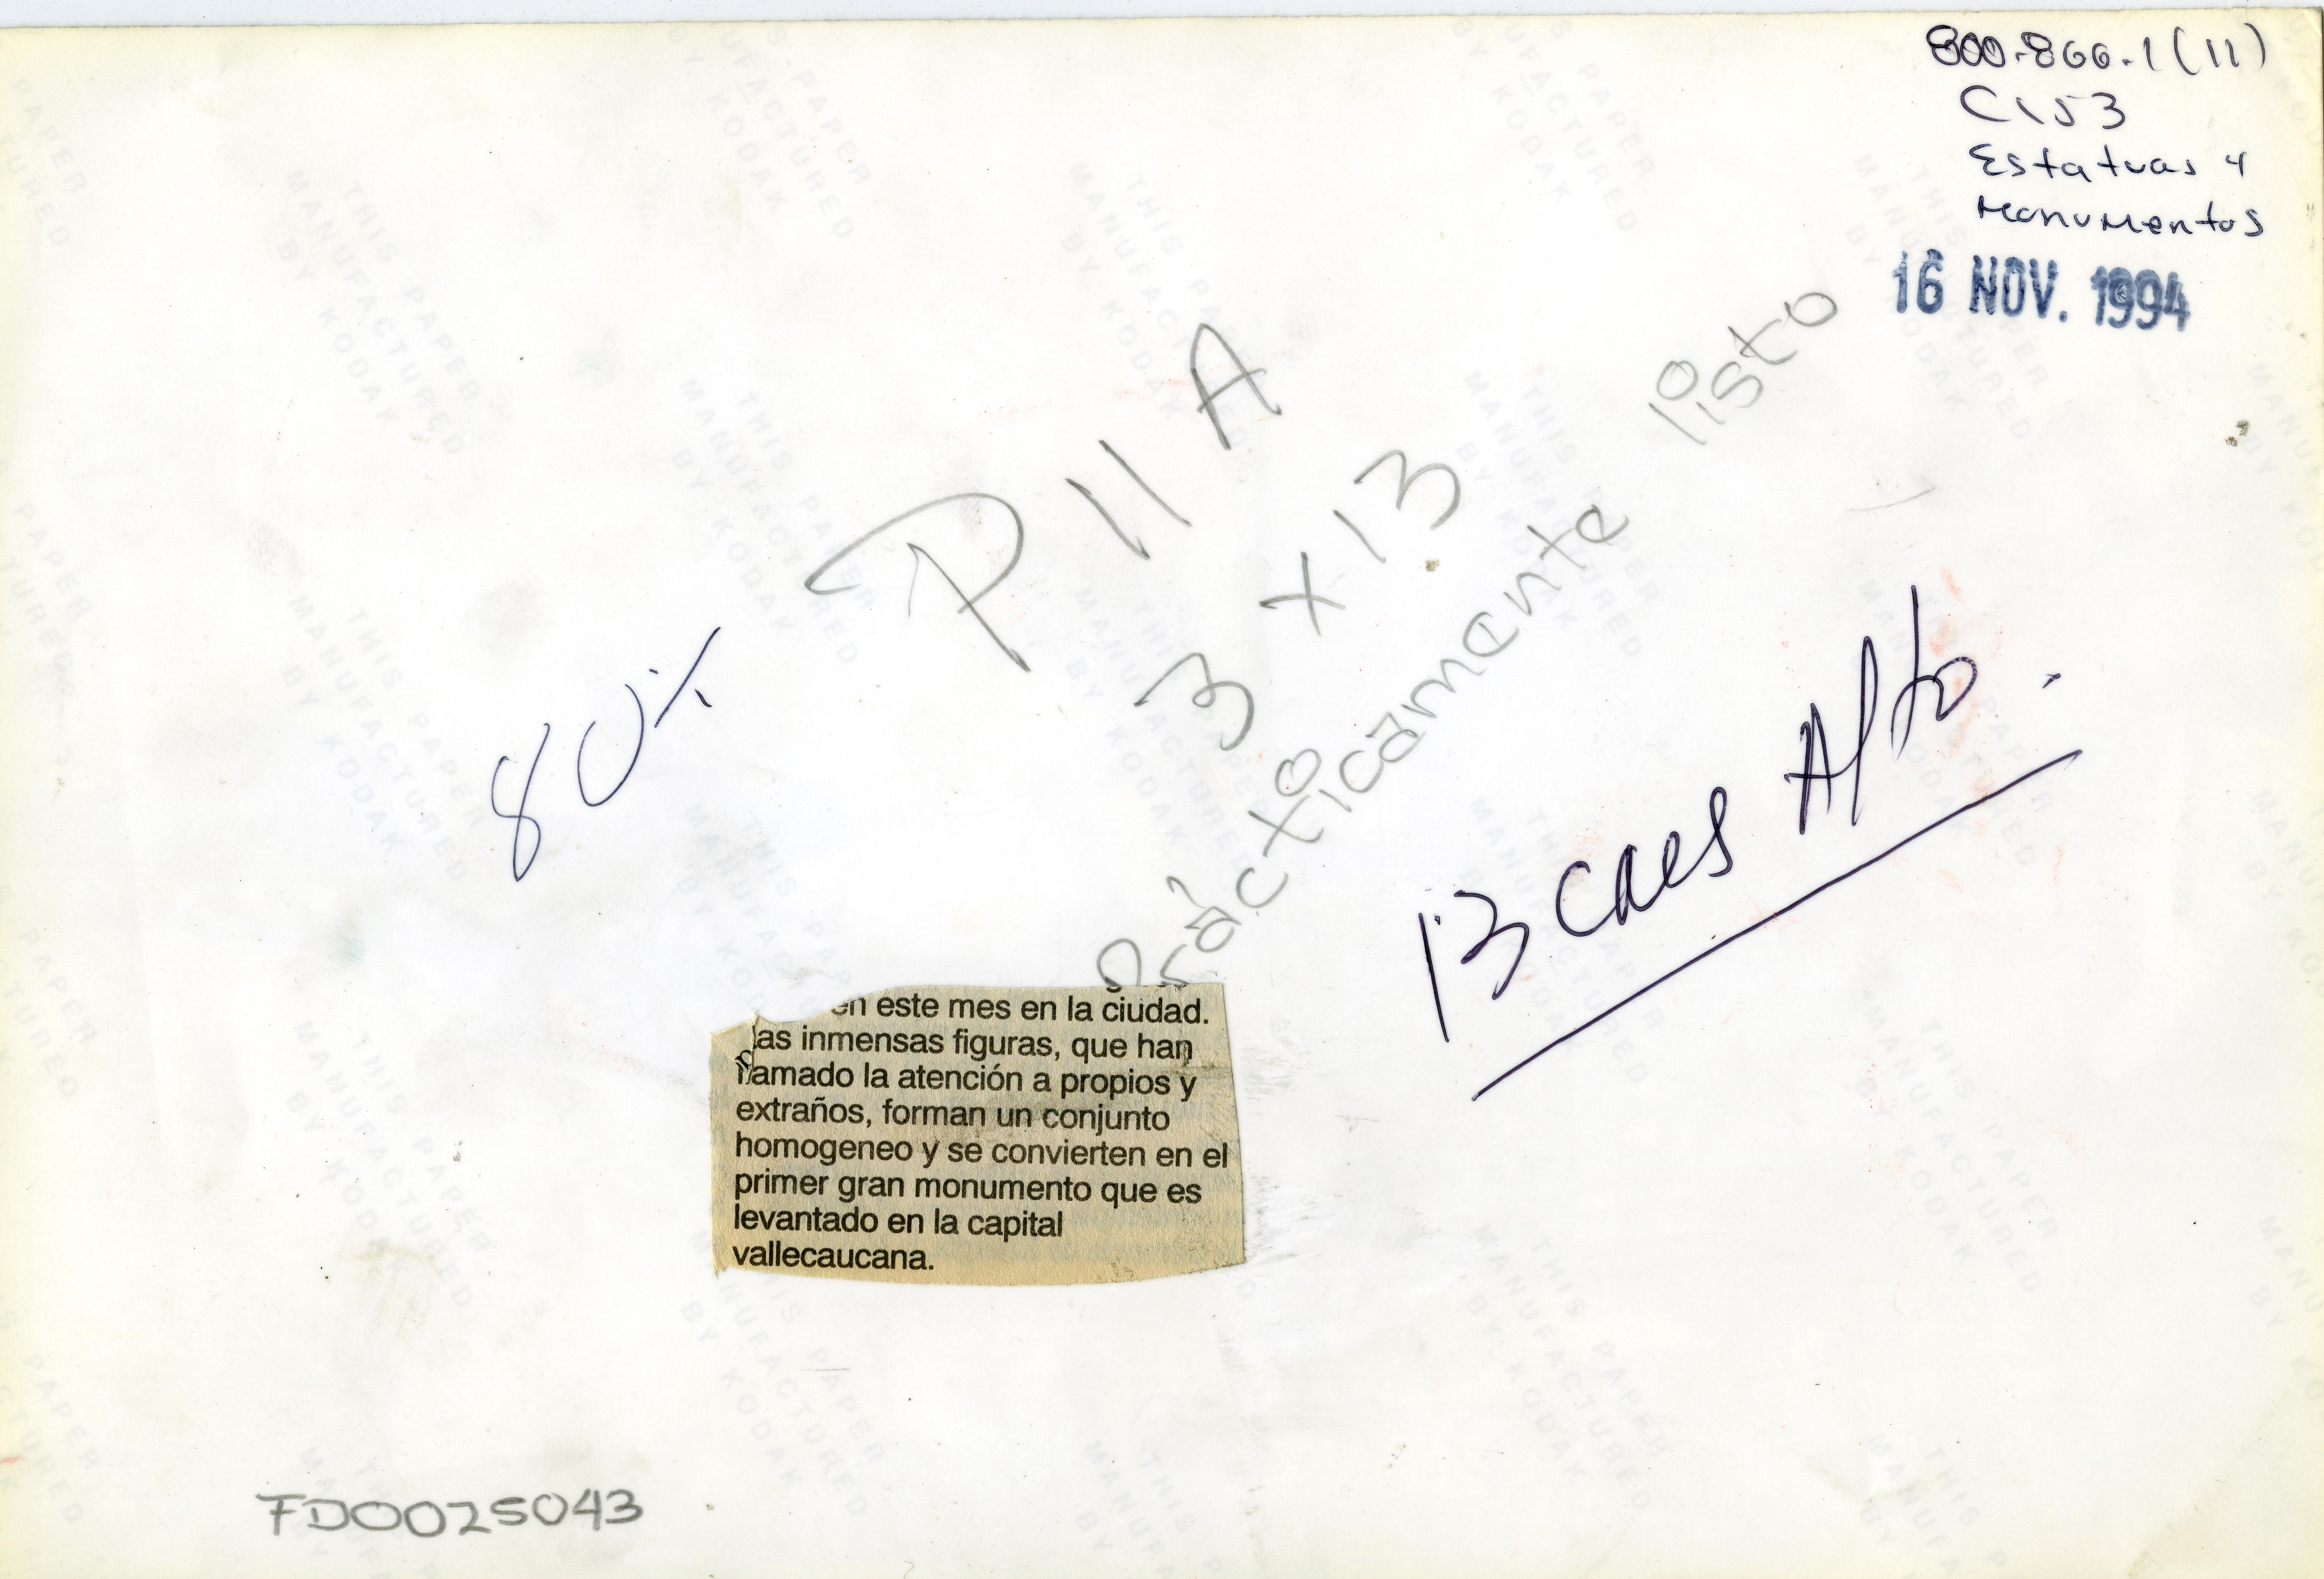 800-866.1(11)
C153
Estatuas y
Monumentos
16 NOV. 1994
P11A
3 x 13
Prácticamente listo
80%
13 caes Alto.
en este mes en la ciudad.
las inmensas figuras, que han
llamado la atención a propios y
extraños, forman un conjunto
homogeneo y se convierten en el
primer gran monumento que es
levantado en la capital
vallecaucana.
FD0025043
THIS PAPER
MANUFACTURED
BY KODAK